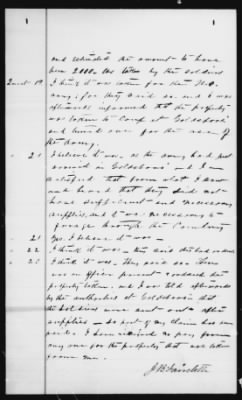 1 1
and estimated the amount to have
been 2000 lbs taken by the soldiers
Quest 19 I think it was taken for the U.S.
army, for they said so and I was
afterwards informed that the property
was taken to Camp at Goldsboro
and turned over for the use of
the army.
" 20 I believe it was, as the army had just
arrived in Goldsboro and I am
satisfied that from what I saw
and heard that they did not
have sufficient and necessary
supplies, and it was necessary to
forage through the Country
" 21 Yes I believe it was -
" 22 I think it was - they said they had orders
" 23 I think it was. They said so. There
was an officer present
property taken. and I was told afterwards
by the authorities at Goldsboro that
the soldiers were sent out after
supplies - no part of my claim has been
paid. I have received no pay from
any one for the property that was taken
from me.